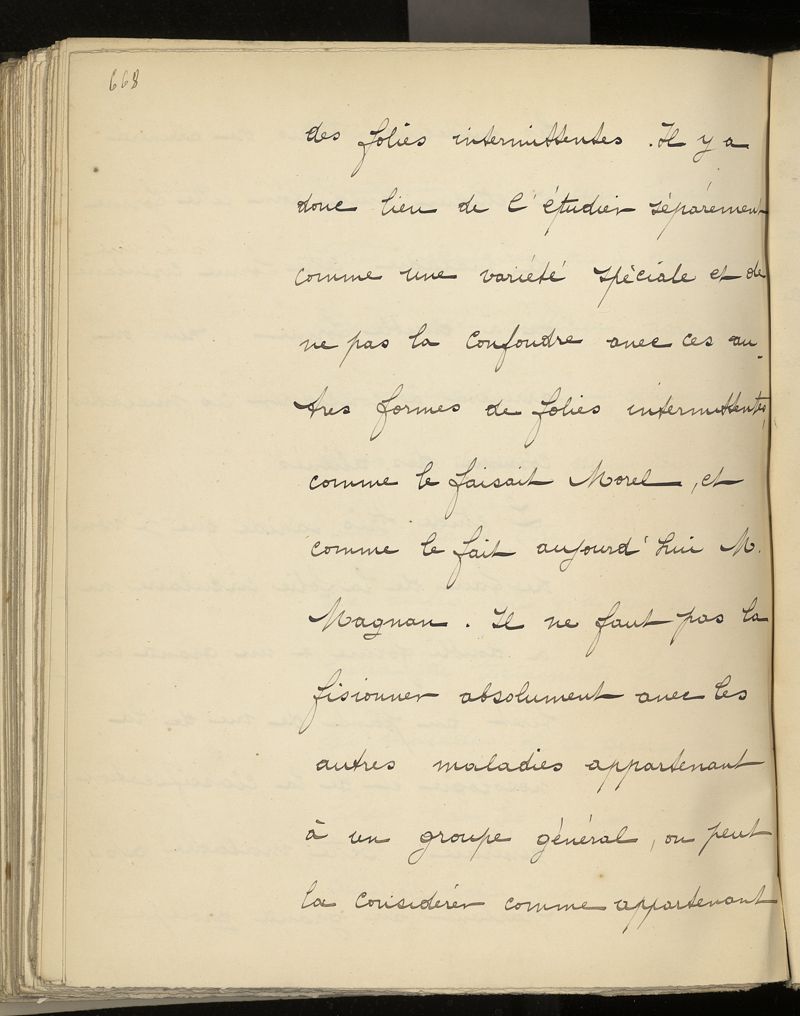 668
des folies intermittentes. Il y a
donc lieu de l'étudier séparément
comme une variété spéciale et de
ne pas la confondre avec ces au-
tres formes de folies intermittentes,
comme le faisait Morel, et
comme le fait aujourd'hui M.
Magnan. Il ne faut pas la
fisionner absolument avec les
autres maladies appartenant
à un groupe général, on peut
la considérer comme appartenant